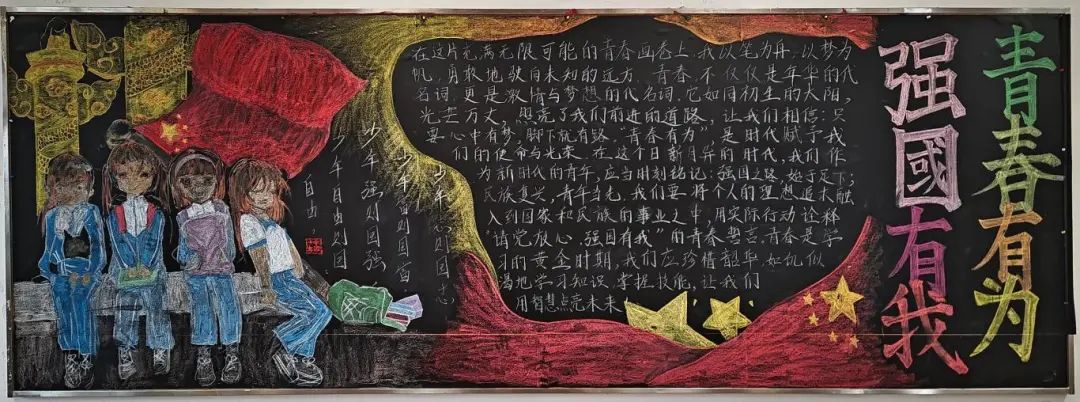 青春有为
强國有我
在这片充满无限可能的青春画卷上,我以笔为舟,以梦为
帆,勇敢地驶向未知的远方。青春,不仅仅是年华的代
名词,更是激情与梦想的代名词。它如同初生的太阳,
光芒万丈,照亮了我们前进的道路,让我们相信:只
要心中有梦,脚下就有路。“青春有为”是时代赋予我
们的使命与光荣。在这个日新月异的时代,我们作
为新时代的青年,应当时刻铭记:强国之路,始于足下;
民族复兴,青年当先。我们要将个人的理想追求融
入到国家和民族的事业之中,用实际行动诠释
“请党放心,强国有我”的青春誓言。青春是学
习的黄金时期,我们应珍惜韶华,如饥似
渴地学习知识,掌握技能,让我们
用智慧点亮未来
少年 则国
少年富则国富
少年强则国强
少年自由则国
自由。